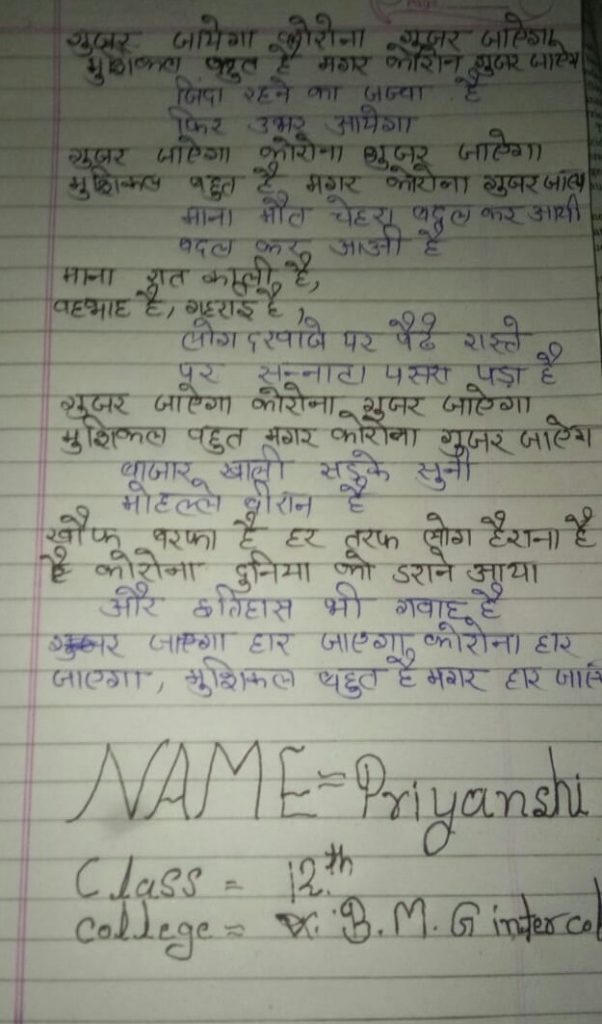 गुजर जायेगा कोरोना गुजर जाऐगा
मुशिकल बहुत है मगर कोरोन गुजर जाऐग
जिंदा रहने का जज्बा है
फिर उभर आयेगा
गुजर जाऐगा कोरोना गुजर जाऐगा
मुशिकल बहुत है मगर कोरोना गुजर जाऐग
माना मौत चेहरा बदल कर आयी
बदल कर आजी है
माना रात काली है,
है, गहराइ है,
लोग दरवाजे पर बैठे रास्ते
पर सन्नाटा पसरा पड़ा है
गुजर जाऐगा कोरोना गुजर जाऐगा
मुशिकल बहुत मगर कोरोना गुजर जाऐग
बाजार खाली सडुके सुनी
मोहल्ले वीरान है
खौफ बरफा है हर तरफ लोग हैराना है
है कोरोना दुनिया को डराने आया
और इतिहास भी गवाह है
गुजर जाएगा हार जाएगा कोरोना हार
जाएगा, मुशिकल बहुत है मगर हार जाऐ
NAME = Priyanshi
Class = 12.th
college = B. M. G inter col